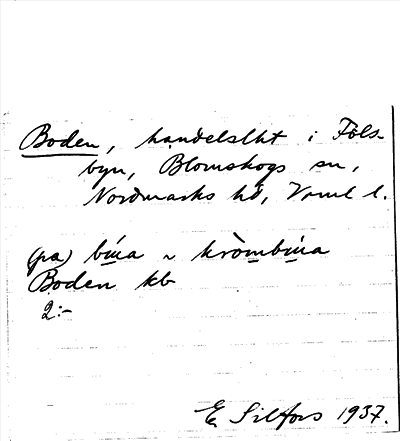 Boden, handelslht i Föls-
byn, Blomskogs sn,
Nordmarks hd, Verml l.
(pa) búa ~ kròmbúa
Boden kb
2:-
E. Silfors 1937.